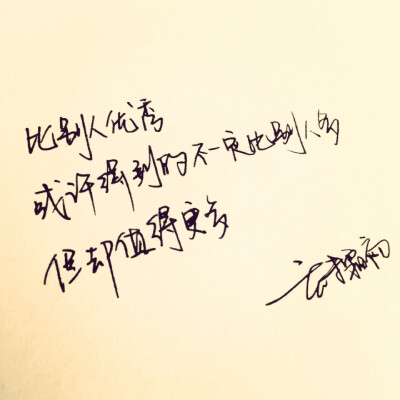 比别人优秀
或许得到的不一定比别人多
但却值得更多